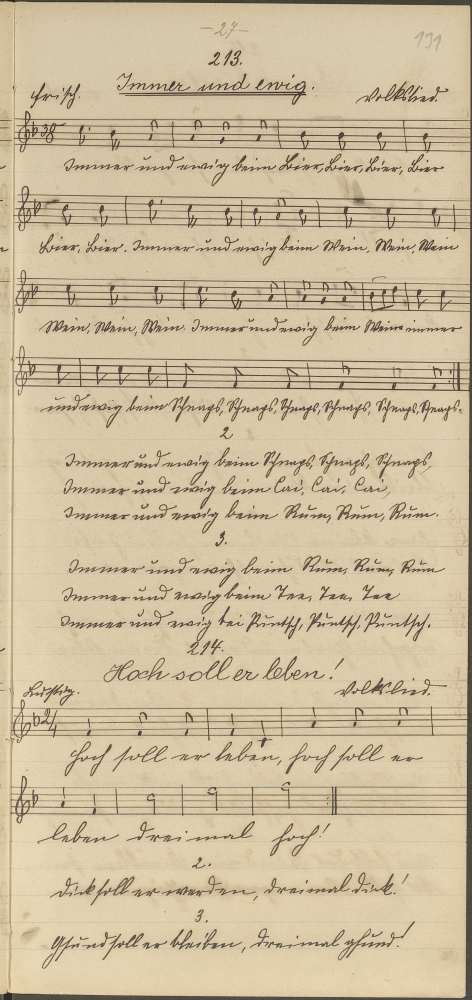 -27-
131
213.
Immer und ewig.
Frisch. Volkslied.
3/8
Immer und ewig beim Bier, Bier, Bier, Bier
Bier, Bier. Immer und ewig beim Wein, Wein, Wein
Wein, Wein, Wein. Immer und ewig beim Wein immer
und ewig beim Schnaps, Schnaps, Schnaps, Schnaps, Schnaps, Schnaps.
2
Immer und ewig beim Schnaps, Schnaps, Schnaps,
Immer und ewig beim Cai, Cai, Cai,
Immer und ewig beim Rum, Rum, Rum.
3.
Immer und ewig beim Rum, Rum, Rum
Immer und ewig beim Tee, Tee, Tee
Immer und ewig bei Puntsch, Puntsch, Puntsch.
214.
Hoch soll er leben!
Lustig. Volkslied.
2/4
Hoch soll er leben, hoch soll er
leben dreimal hoch!
2.
Dick soll er werden, dreimal dick!
3.
Gsund soll er bleiben, dreimal gsund!